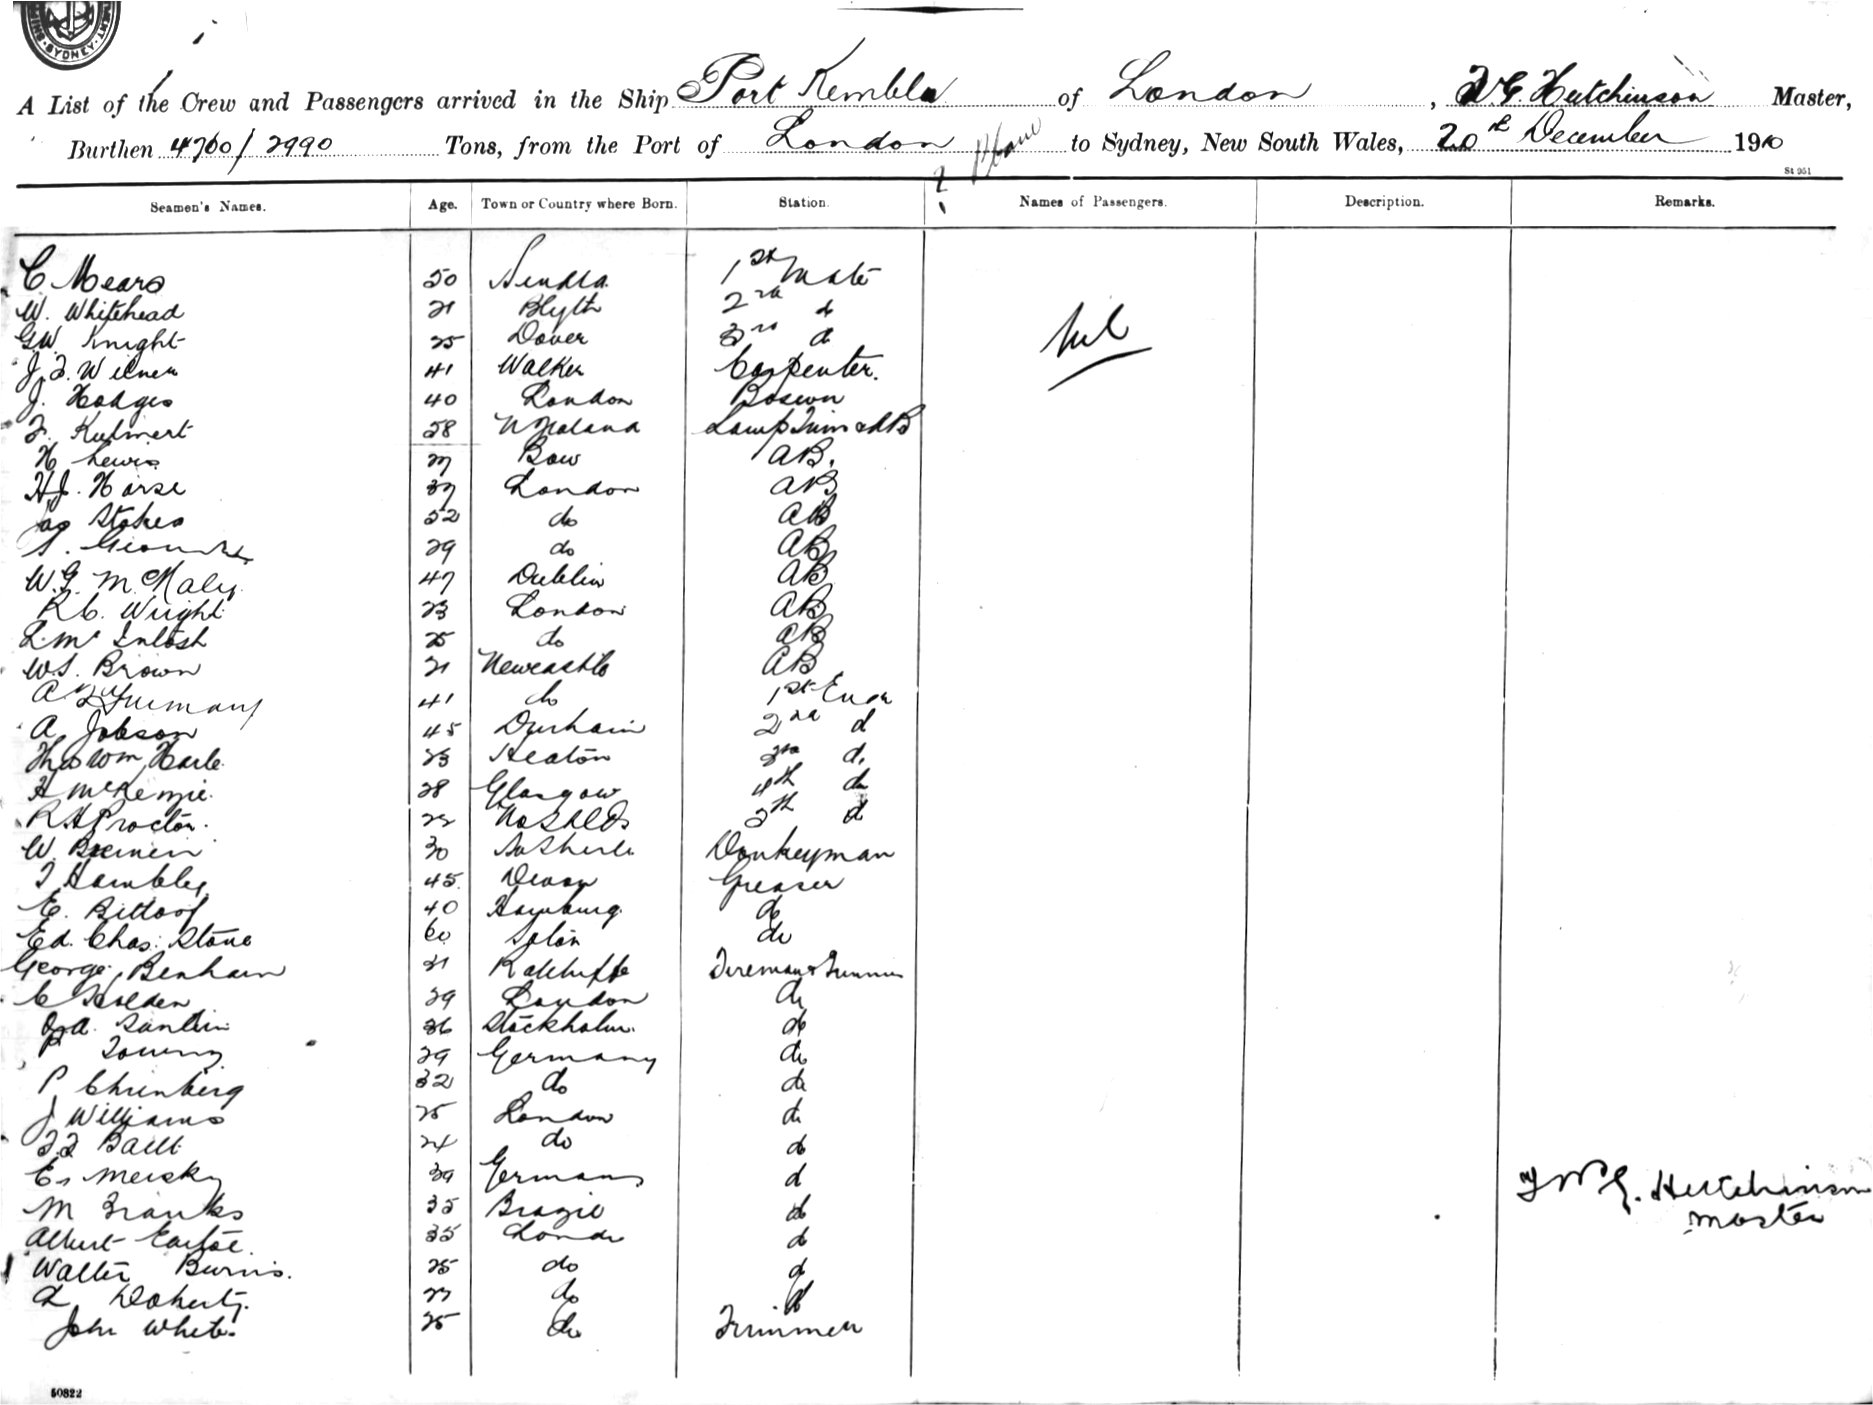 SYDNEY
A List of the Crew and Passengers arrived in the Ship Port Kembla of London, Hutchinson Master,
Burthen 4700/2990 Tons, from the Port of London to Sydney, New South Wales, 20th December 1910
St 951
Seamen's Names. Age. Town or Country where Born. Station. Names of Passengers. Description. Remarks.
C. Mears 50 1st Mate
W. Whitehead 21 Blyth 2nd d
G.W. Knight 25 Dover 3rd d Nil
J. 41 Walker Carpenter.
J. Hodges 40 London Bosun
58 AB
H Lewis 27 Bow AB.
H.J. Horse 37 London AB
Jas Stokes 52 do AB
S. 29 do AB
W.G. 47 Dublin AB
R.C. Wright 23 London AB
L. McIntosh 25 do AB
W.S. Brown 21 Newcastle AB
A 41 do 1st Engr
A. Jobson 45 Durham 2nd d
Thos Wm Harle 23 Heaton 3rd d.
H McKenzie. 28 Glasgow 4th do
R H Proctor. 5th d
W. 30 Donkeyman
T Hambley 45. Devon Greaser
E. 40 Hamburg. do
Ed. Chas. Stone 60 do
George Benham 21 Ratcliffe Fireman & Trimmer
C Holden 29 London do
36 Stockholm. do
29 Germany do
P. 32 do do
J Williams 25 London do
24 do do
E. Mersky 39 Germany d
M Franks 35 Brazil do
Albert 35 London do
Walter Burns. 25 do d
Doherty. 27 do d
John White. 25 do Trimmer
Hutchinson
Master
50822